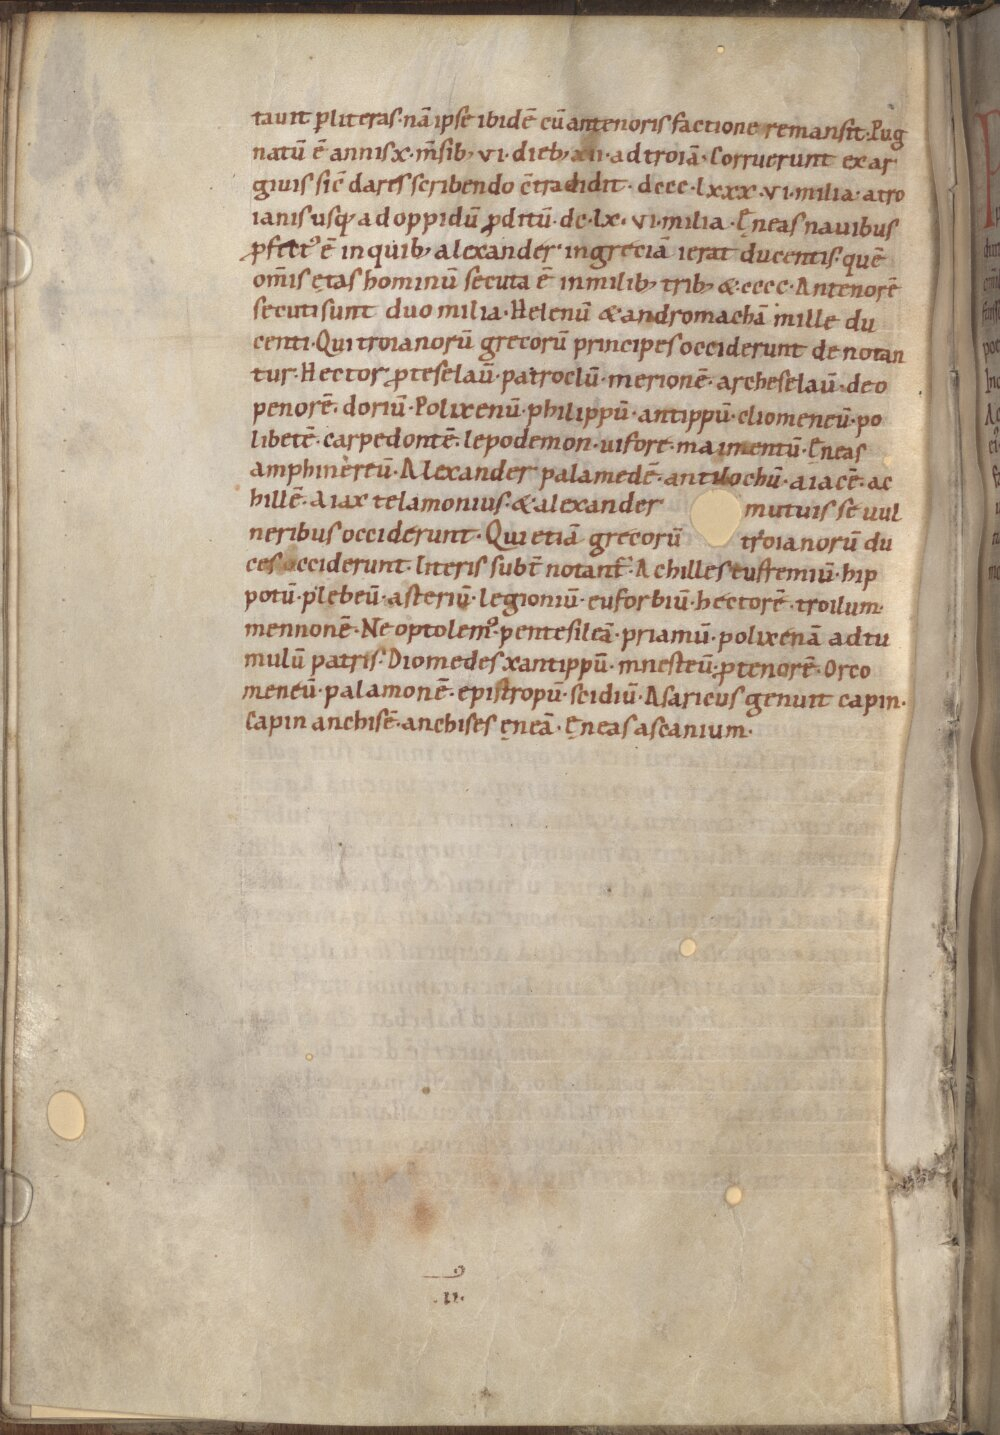 tauit p literas· nā ipse ibidē cū antenoris factione remansit· Pug
natū ē annis x· m̄sib; vi· dieb; xii· ad troiā· Corruerunt ex ar
giuis sič dares scribendo c̄tradidit· dccc· lxxx· vi· milia· a tro
ianis usq; ad oppidū p̄ditū· dc· lx· vi· milia· Ęneas nauibus
p̄fect᾿ ē in quib; alexander· in greciā ierat ducentis· quē
om̄is ętas hominū secuta ē in milib; trib; & cccc· Antenorē
secuti sunt duo milia· Helenū & andromachā mille du
centi· Qui troianorū grecorū principes occiderunt denotan
tur· Hector p̄teselaū· patroclū· merionē· archeselaū· deo
penorē· doriū· Polixenū· philippū· antippū· cliomeneū· po
libetē· carpedontē· lepodemon· uifore· maimentū· Ęneas
amphinereū· Alexander palamedē· antilochū· aiacē· ac
hillē· Aiax telamonius· & alexander mutuis se uul
neribus occiderunt· Qui etiā grecorū troianorū du
ces occiderunt· literis subt̄ notant᾿· Achilles eufremiū· hip
potū· plebeū· asteriū· legioniū· euforbiū· hectorē· troilum·
mennonē· Neoptolem᾿· pentesileā· priamū· polixenā ad tu
mulū patris· Diomedes xantippū· mnesteū· p̄tenorē· Orco
meneū· palamonē· epistropū· scidiū· Asaricus genuit capin·
Capin anchisē· anchises ęneā· Ęneas ascanium·
·II·